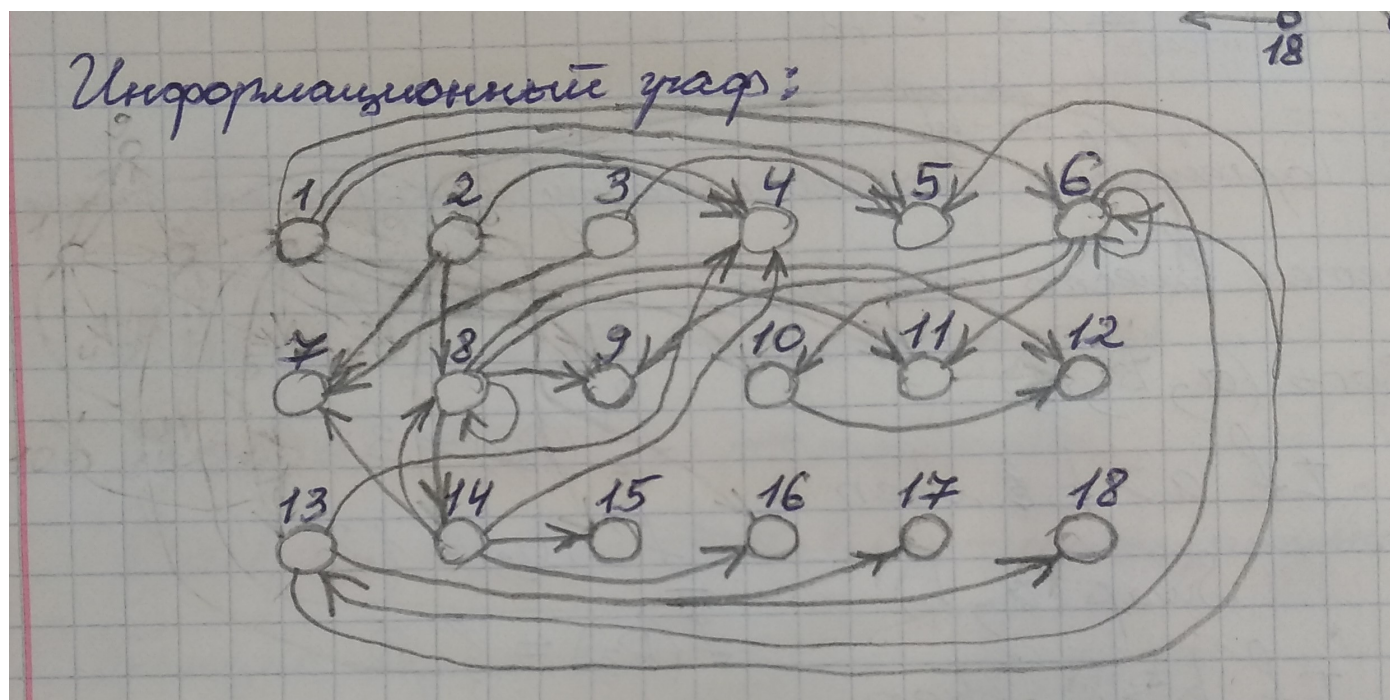 18
Информационный граф:
1 2 3 4 5 6
7 8 9 10 11 12
13 14 15 16 17 18